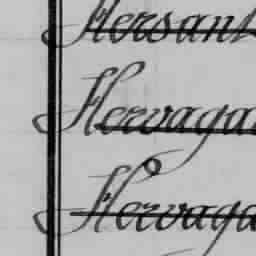 Hersant
Hervaga
Hervaga